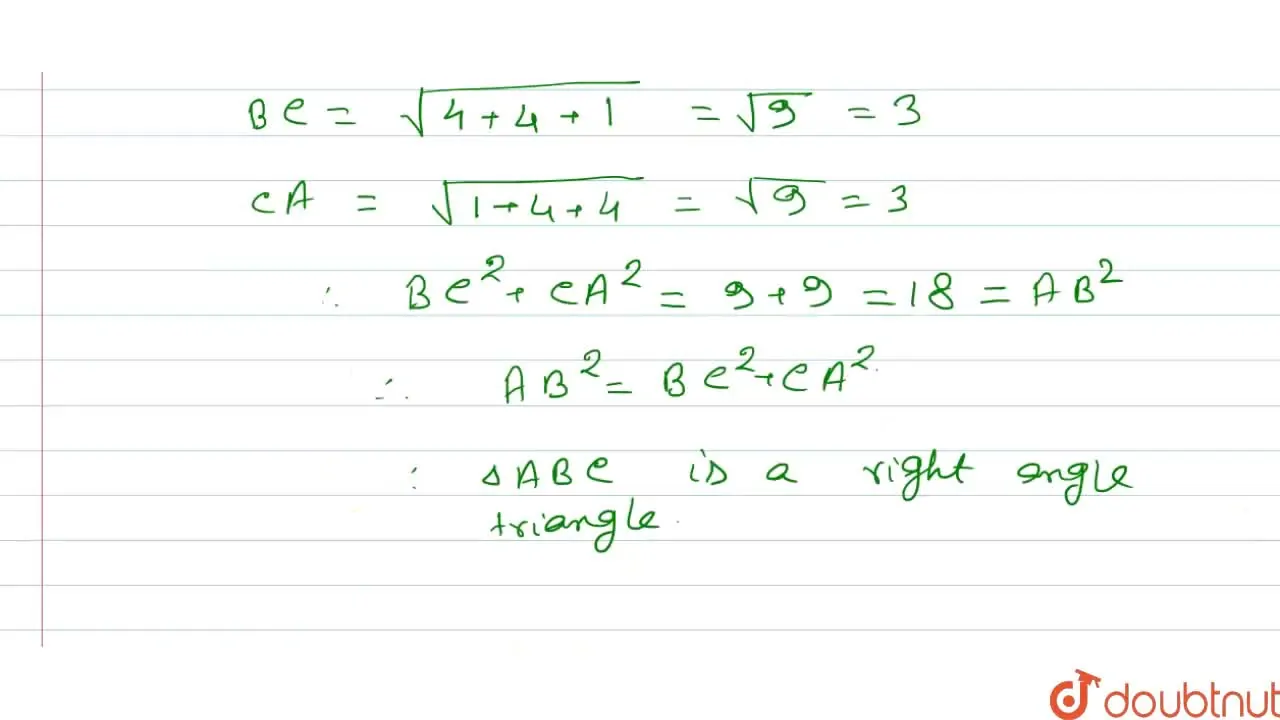 BC = √4+4+1 = √9 = 3
CA = √1+4+4 = √9 = 3
∴ BC² + CA² = 9+9 = 18 = AB²
∴ AB² = BC² + CA²
∴ △ABC is a right angle
triangle.
doubtnut